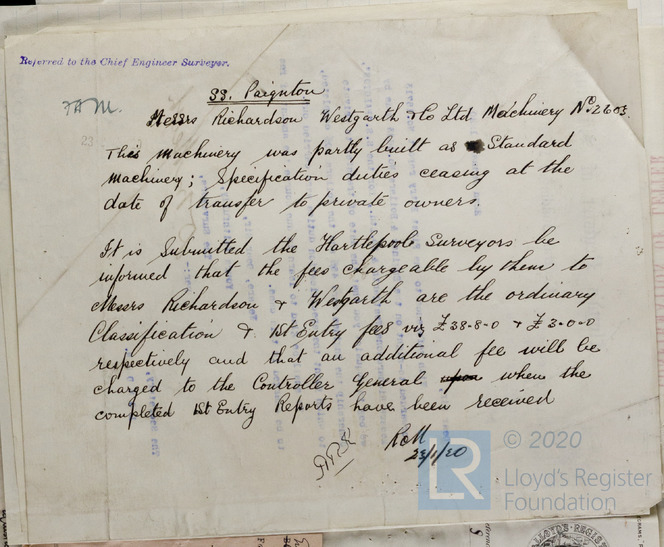 Referred to the Chief Engineer Surveyor.
SS. Paignton
Messrs Richardson Westgarth & Co Ltd Machinery No. 2603.
23
This machinery was partly built as Standard
machinery; Specification duties ceasing at the
date of transfer to private owners.
It is submitted the Hartlepools Surveyors be
informed that the fees chargeable by them to
Messrs Richardson & Westgarth are the ordinary
Classification & 1st Entry fees viz £38-8-0 & £3-0-0
respectively and that an additional fee will be
charged to the Controller General upon when the
completed 1st Entry Reports have been received
23/1/20
LR
© 2020
Lloyd's Register
Foundation